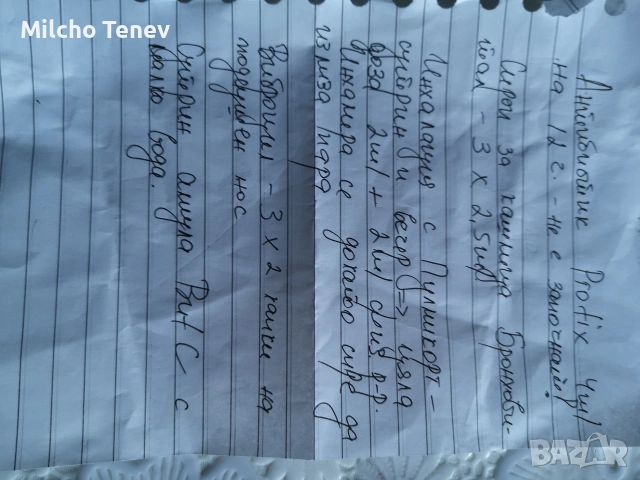 Milcho Tenev
Антибиотик Profix 4ml
на 12 г. - не е започнат!
Сироп за кашлица Бронхови-
йал - 3 х 2,5мл
Инхалация с Пулмикорт -
сутрин и вечер => цяла
доза 2ml + 2ml физ. р-р.
Инхалира се докато спре да
излиза пара.
Виброцил - 3 х 2 капки на
подсушен нос
Сутрин ампула Вит C с
малко вода.
BAZAR